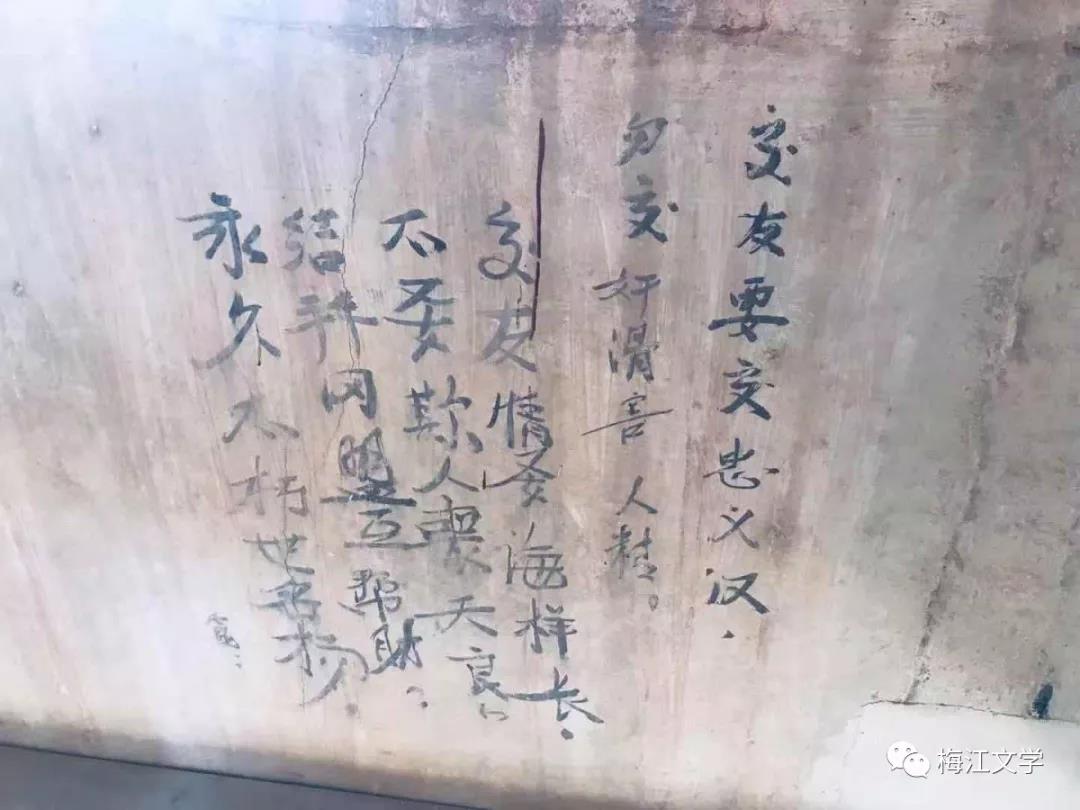 交友要交忠义汉.
勿交奸滑害人
交友情要海样长.
不要欺人丧天良
结拜同盟互帮财.
永久不朽世名扬
梅江文学